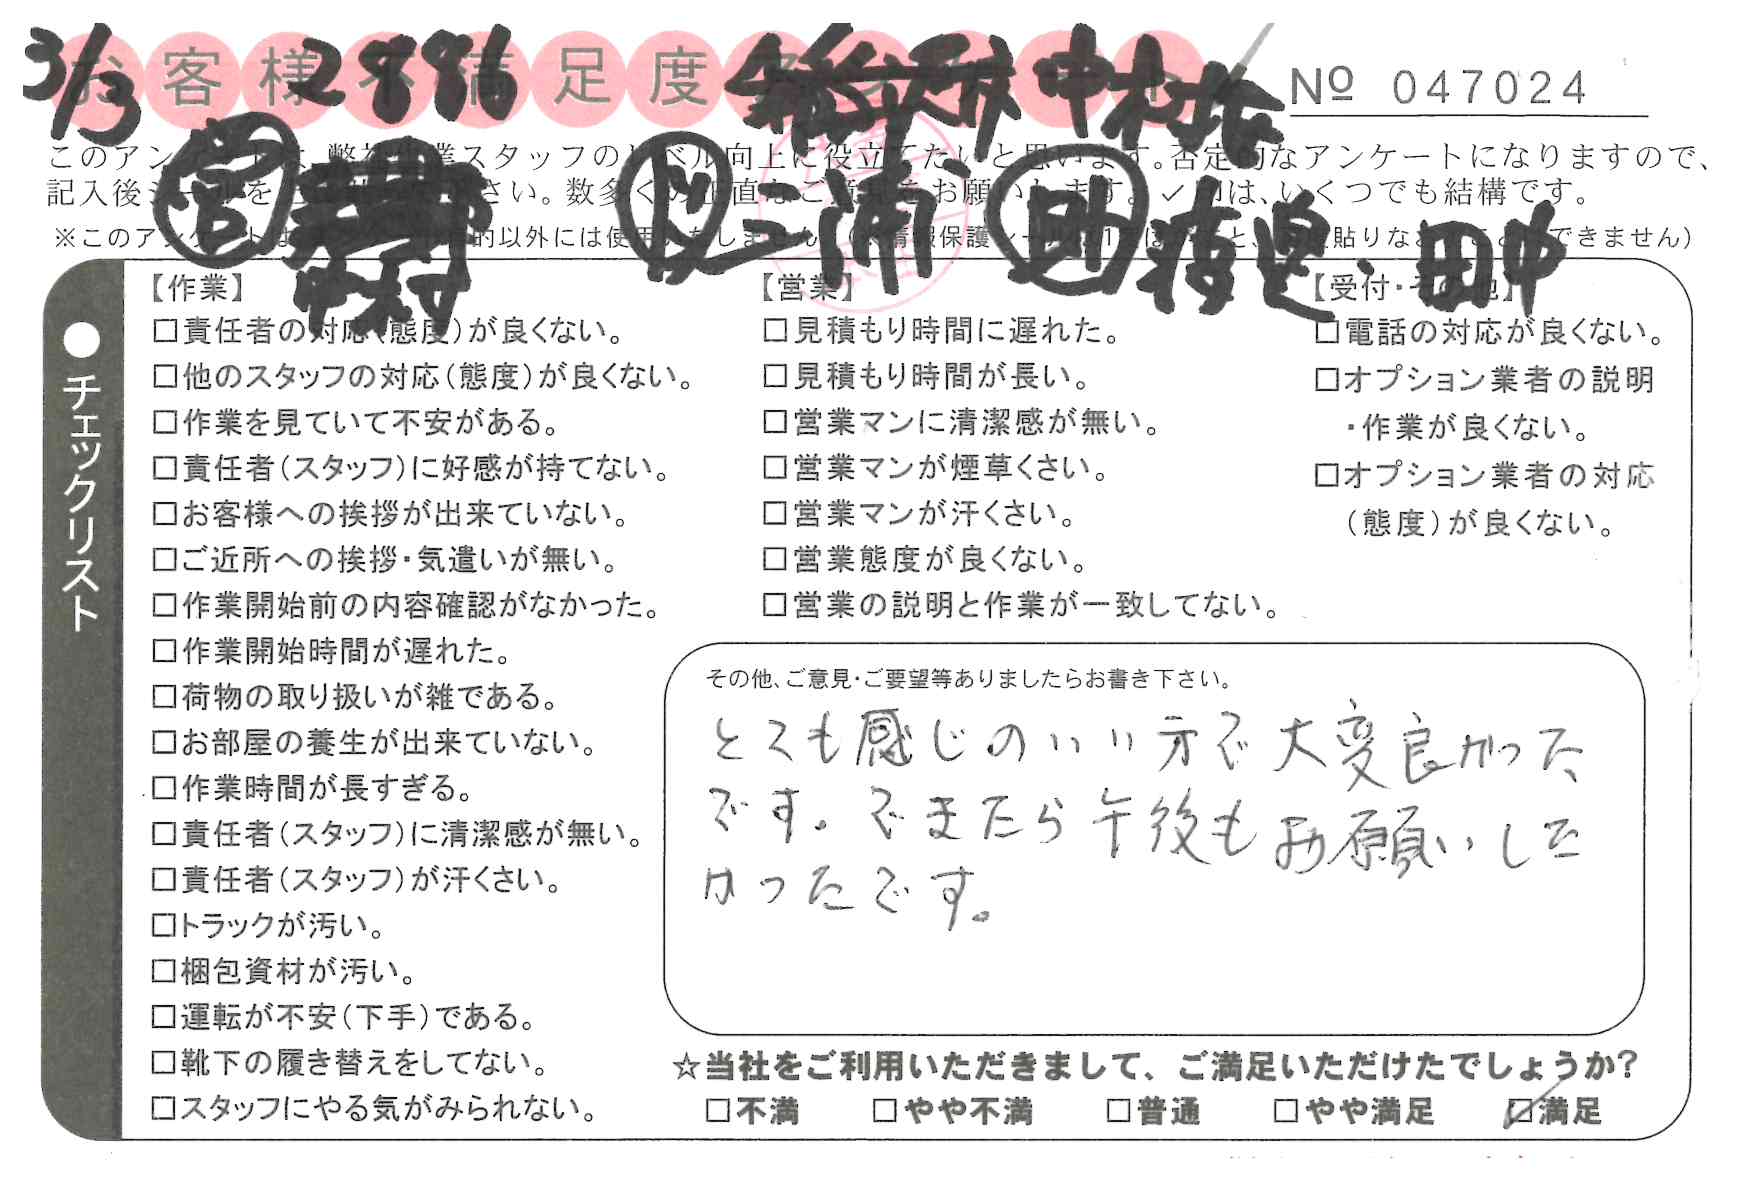 3/13 2896 中村
お客様不満足度アンケート
№ 047024
このアンケートは、弊社作業スタッフのレベル向上に役立てたいと思います。否定的なアンケートになりますので、
記入後シールを さい。数多くの正直なご意見をお願いします。✓印は、いくつでも結構です。
※このアンケートは 目的以外には使用いたしません。
できません)
営 中村 リ 三浦 助 渡邉、田中
●チェックリスト
【作業】
□責任者の対応(態度)が良くない。
□他のスタッフの対応(態度)が良くない。
□作業を見ていて不安がある。
□責任者(スタッフ)に好感が持てない。
□お客様への挨拶が出来ていない。
□ご近所への挨拶・気遣いが無い。
□作業開始前の内容確認がなかった。
□作業開始時間が遅れた。
□荷物の取り扱いが雑である。
□お部屋の養生が出来ていない。
□作業時間が長すぎる。
□責任者(スタッフ)に清潔感が無い。
□責任者(スタッフ)が汗くさい。
□トラックが汚い。
□梱包資材が汚い。
□運転が不安(下手)である。
□靴下の履き替えをしてない。
□スタッフにやる気がみられない。
【営業】
□見積もり時間に遅れた。
□見積もり時間が長い。
□営業マンに清潔感が無い。
□営業マンが煙草くさい。
□営業マンが汗くさい。
□営業態度が良くない。
□営業の説明と作業が一致してない。
【受付・その他】
□電話の対応が良くない。
□オプション業者の説明
・作業が良くない。
□オプション業者の対応
(態度)が良くない。
その他、ご意見・ご要望等ありましたらお書き下さい。
とても感じのいい方で大変良かった
です。できたら午後もお願いした
かったです。
☆当社をご利用いただきまして、ご満足いただけたでしょうか?
□不満 □やや不満 □普通 □やや満足 ☑満足